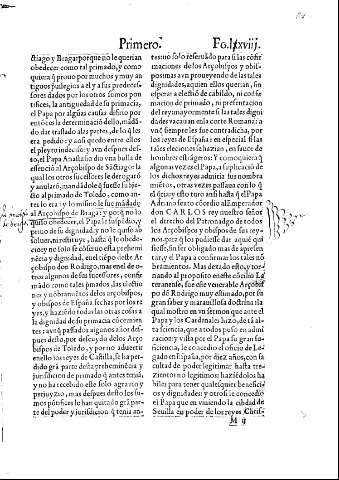 Primero. Fo. lxxviij.
ctiago y Braga: porque no le querian
obedecer como tal primado, y como
quiera q̃ prouo por muchos y muy an
tiguos priuilegios a el y a sus predeces-
sores dados por los otros sumos pon
tifices, la antiguedad de su primacia,
el Papa por algunas causas difirio por
entõces la determinaciõ dello, mãdã-
do dar traslado a las partes, de lo q̃ les
era pedido: y assi quedo entre ellos
el pleyto indeciso: y aun despues des-
to, el Papa Anastasio dio vna bulla de
essencion al Arçobispo de Sãctiago: la
qual los otros sucessores le derogarõ
y anularõ, mandãdole q̃ fuesse subje-
cto al primado de Toledo, como an-
tes lo era: y lo mismo le fue mãdado
al Arçobispo de Braga: y porq̃ no lo
quiso obedecer, el Papa le suspẽdio, y
priuo de su dignidad, y no le quiso ab
soluer, ni restituyr, hasta q̃ lo obede-
cio: y no solo se obseruo esta prehemi
nẽcia y dignidad, en el tiẽpo deste Ar
çobispo don Rodrigo, mas en el de o-
tros algunos de sus sucessores, confir-
mãdo como tales primados, las electio
nes y nõbramiẽtos de los arçobispos,
y obispos de España fechas por los re
yes, y haziẽdo todas las otras cosas a
la dignidad de su primacia cõcernien
tes: aunq̃ passados algunos años des-
pues desto, por descuydo de los Arço
bispos de Toledo, y por no aduertir
en ello los reyes de Castilla, se ha per-
dido grã parte desta preheminẽcia y
jurisdiction de primado q̃ antes tenia,
y no ha recebido este solo agrauio y
perjuyzio, mas despues desto los su-
mos põtifices le han quitado grã par-
te del poder y jurisdicion q̃ tenia an-
testituõ solo reseruado para si las cõfir
maciones de los Arçobispos y obis-
pos: mas aun proueyendo de las tales
dignidades, aquien ellos querian, sin
esperar a electiõ de cabildo, ni confir
maciõ de primado, ni presentacion
del rey mayormente si las tales digni
dades vacauan en la corte Romana: a
vnq̃ siempre les fue contradicha, por
los reyes de España: en especial si las
tales elecciones se hazian, en fauor de
hombres estrãgeros: Y como quiera q̃
algunas vezes el Papa, a suplicaciõ de
los dichos reyes admitia sus nombra
miẽtos, otras vezes passaua con lo q̃
el q̃ria: y esto turo assi hasta q̃ el Papa
Adriano sexto cõcedio al Emperador
don CARLOS rey nuestro señor
el derecho del Patronadgo de todos
los Arçobispos y obispos de sus rey-
nos: para q̃ los pudiesse dar aquiẽ qui
siesse, sin ser obligado mas de apresen
tar, y el Papa a confirmar los tales nõ
bramientos. Mas dexado esto, y tor-
nando al proposito eneste cõcilio La
teranense, fue este venerable Arçobis
po dõ Rodrigo muy estimado, por su
gran saber y marauillosa doctrina: la
qual mostro en vn sermon que ante el
Papa y los Cardenales hizo, de tã al-
ta sciencia, que a todos puso en admi
racion: y vista por el Papa su gran su-
ficiencia, le concedio el oficio de Le-
gado en España, por diez años, con fa
cultad de poder legitimar hasta tre-
ziento no legitimos: haziẽdolos ha
biles para tener qualesquier benefici
os y dignidades: y otro si le concedio
el Papa que en viniendo la cibdad de
Seuilla en poder de los reyes Chris-
M ij